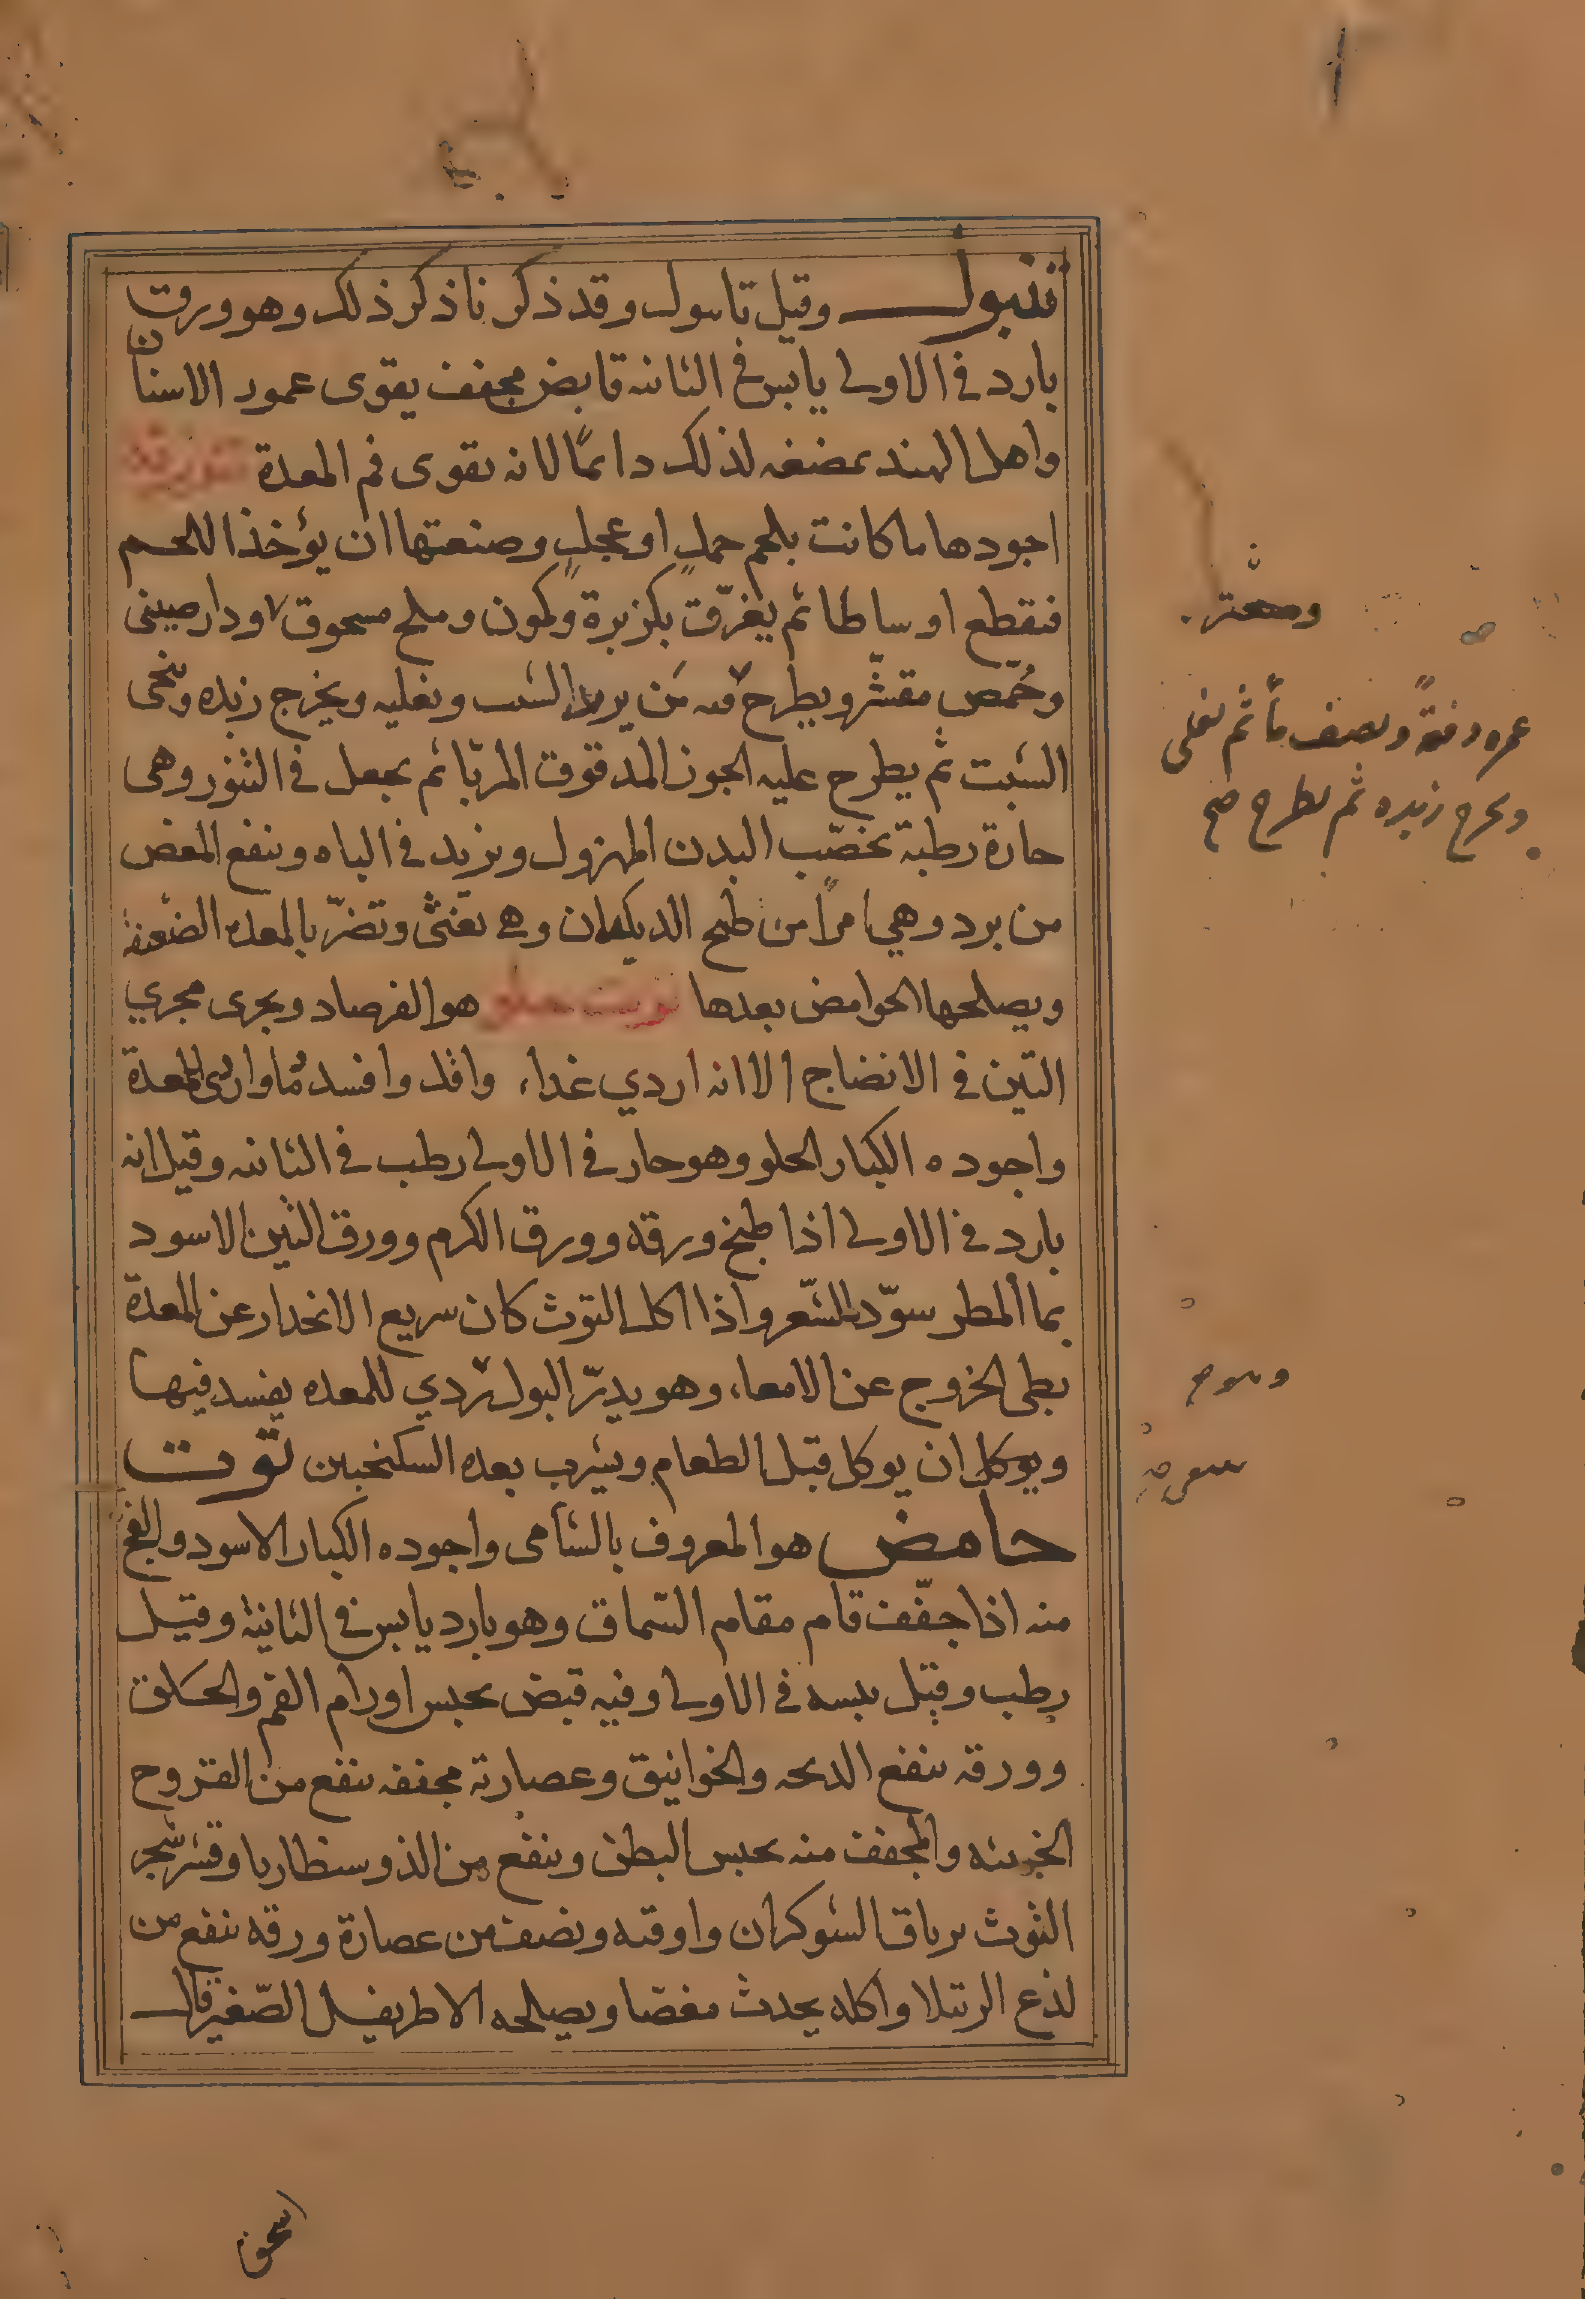 تنبول وقيل تاسول وقد ذكرنا ذكر ذلك وهو ورق
بارد فى الاولى يابس فى الثانيه قابض مجفف يقوى عمود الاسنان
واهل الهند يمضغه لذلك دائمًا لانه يقوى فم المعدة تنورية
اجودها ما كانت بلحم حملٍ او عجلٍ وصنعتها ان يؤخذ اللحم
فيقطع اوساطا ثم يغرّق بكزبرة وكمون وملح مسحوق ودارصينى
وحُمّص مقشّر ويطرح فيه من الشبت ونغليه ويخرج زبده وينحى
الشبت ثم يطرح عليه الجوز المدقوق المربّا ثم يجعل فى التنور وهى
حارة رطبة تخصّب البدن المهزول وتزيد فى الباه وينفع المغص
من برد وهي امرًا من طبخ الديكدان وهى تغثى وتضرّ بالمعده الضعيفة
ويصلحها الحوامض بعدها توت حلو هو الفرصاد ويجرى مجري
التين فى الانضاج الا انه اردي غداء واقل وافسد دمًا واردى للمعدة
واجوده الكبار الحلو وهو حار فى الاولى رطب فى الثانيه وقيل انه
بارد فى الاولى اذا طبخ ورقه وورق الكرم وورق التين الاسود
بماء المطر سوّد الشعر واذا اكل التوث كان سريع الانحدار عن المعدة
بطى الخروج عن الامعاء وهو يدرّ البول ردي للمعده يفسد فيها
ويوكل ان يوكل قبل الطعام ويشرب بعده السكنجبين توت
حامض هو المعروف بالشامى واجوده الكبار الاسود والفج
منه اذا جفّف قام مقام السّماق وهو بارد يابس فى الثانية وقيل
رطب وقيل يبسه فى الاولى وفيه قبض يحبس اورام الفم والحلق
وورقه ينفع الذبحه والخوانيق وعصارته مجففه ينفع من القروح
الخبيثه والمجفف منه يحبس البطن وينفع من الذوسنطاريا وقشر شجر
التوث ترياق الشوكران واوقيه ونصف من عصارة ورقه ينفع من
لدغ الرتيلا واكله يحدث مغصا ويصلحه الاطريفل الصّغير قال
وصعتر
ونصف ماً ثم يغلى
ويخرج زبده ثم يطرح صح